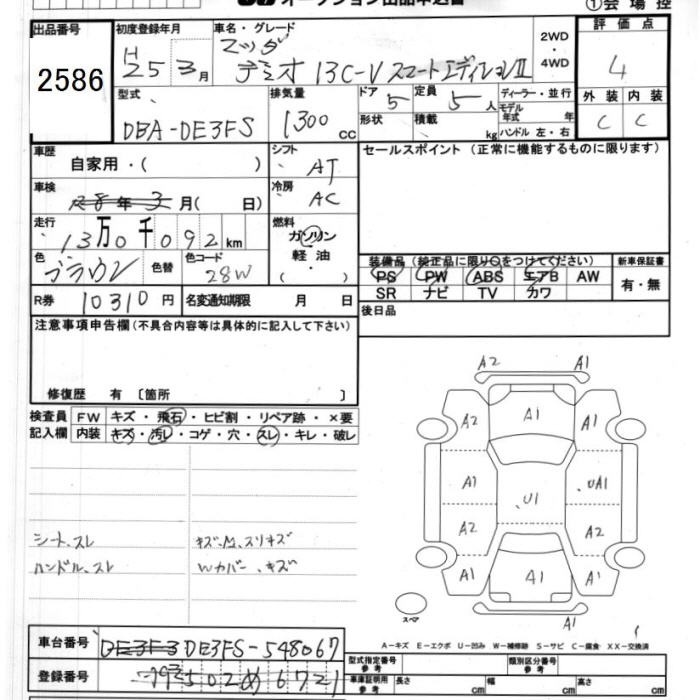 オークション出品申込書 ①会場控
出品番号 初度登録年月 車名・グレード 評価点
2586 H25年3月 マツダ デミオ 13C-V スマートエディションII 2WD・4WD 4
型式 排気量 ドア 5 定員 5人 ディーラー・並行 外装 内装
DBA-DE3FS 1300cc 形状 積載 kg モデル年式 年 ハンドル 左・右 C C
車歴 シフト セールスポイント (正常に機能するものに限ります)
自家用・( ) AT
車検 冷房
28年3月( 日) AC
走行 燃料
13万0千092km ガソリン
色 色替 色コード 軽油 装備品 (純正品に限り○をつけてください) 新車保証書
ブラウン 28W ・( ) PS PW ABS エアB AW 有・無
SR ナビ TV カワ
R券 10310円 名変通知期限 月 日 後日品
注意事項申告欄(不具合内容等は具体的に記入して下さい)
修復歴 有 〔箇所 〕
検査員 FW キズ・飛石・ヒビ割・リペア跡・×要
記入欄 内装 キズ・汚レ・コゲ・穴・スレ・キレ・破レ
シート、スレ
ハンドル、スレ
Wカバー、キズ
A2 A1
A2 A1 A1
A1 U1 UA1
A2 A2
A1 A1 A1
A1
スペア
A-キズ E-エクボ U-凹み W-補修跡 S-サビ C-腐食 XX-交換済
車台番号 DE3FS-548067
登録番号 502 め 6721
型式指定番号 参考 類別区分番号 参考
車庫証明用 参考 長さ cm 幅 cm 高さ cm